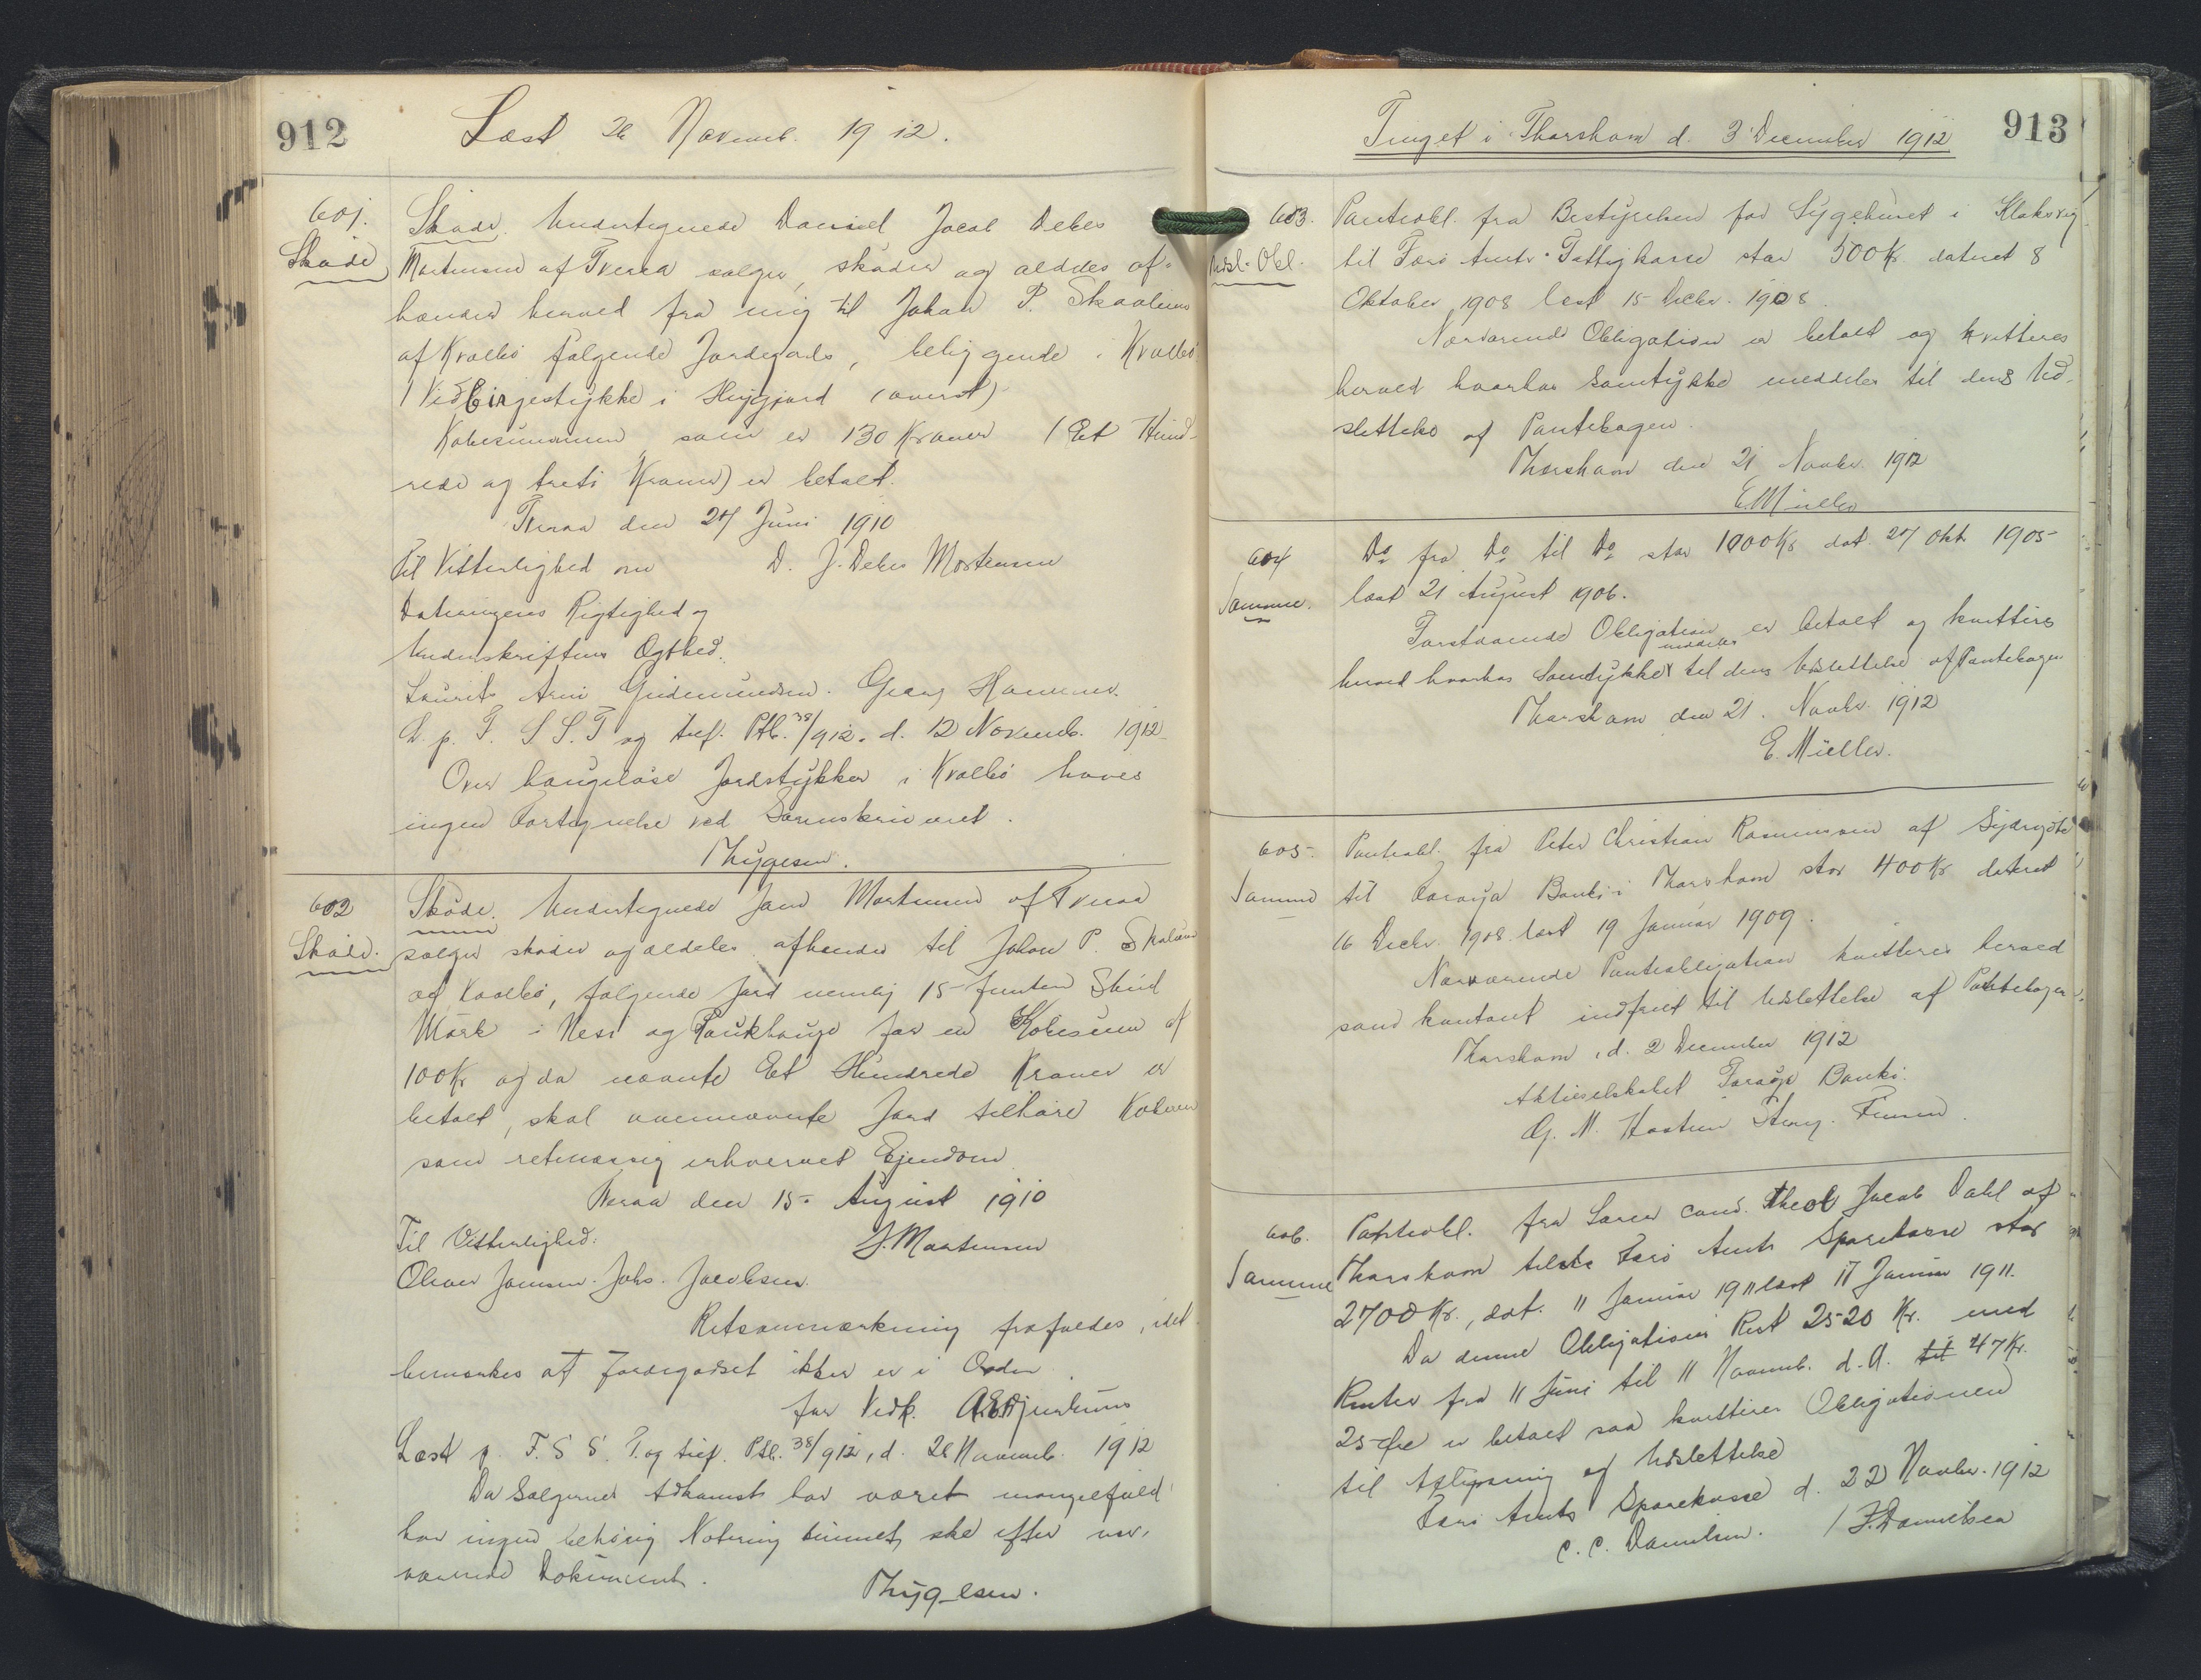 912
Læst 26 Novemb. 1912.
601.
Skøde
Skøde. Undertegnede Daniel Jacob Debes
Mortensen af Tveraa sælger, skøder og aldeles af-
hænder herved fra mig til Johan P. Skaalum
af Kvalbø følgende Jordegods, beliggende i Kvalbø
1 Vidbirgestykke i Heygjord (øverst)
Købesummen som er 130 Kroner (Et Hund-
rede og treti Kroner) er betalt.
Tveraa den 24 Juni 1910
Til Vitterlighed om D. J. Debes Mortensen
Dateringens Rigtighed og
Underskriftens Ægthed.
Laurits Arni Gudmundsen. Georg Hammer.
L. p. F. S. S. T og tilf. Ptb. 38/912. d. 12 Novemb. 1912
Over haugeløse Jordstykker i Kvalbø haves
ingen Fortegnelse ved Sorenskriveriet.
Thygesen.
602
Skøde.
Skøde. Undertegnede Jens Mortensen af Tveraa
sælger skøder og aldeles afhænder til Johan P. Skaalum
af Kvalbø, følgende Jord nemlig 15 femten Skind
Mørk i Nesi og Paukhauge for en Købesum af
100 Kr og da nævnte Et Hundrede Kroner er
betalt, skal ovennævnte Jord tilhøre Køberen
som retmæssig erhvervet Ejendom
Tveraa den 15. August 1910
Til Vitterlighed: J. Mortensen
Oliver Joensen. Johs. Jacobsen.
Retsanmærkning frafaldes, idet
bemærkes at Jordegodset ikke er i Orden
for Vedk.
Læst p. F. S S. T. og tilf. Ptb. 38/912, d. 26 Novemb. 1912
Da Sælgernes Adkomst har været mangelfuld
har ingen behørig Notering kunnet ske efter nær-
værende Dokument.
Thygesen.
913
Tinget i Thorshavn d. 3 December 1912
603.
Udsl. Obl.
Panteobl. fra Bestyrelsen for Sygehuset i Klaksvig
til Færø Amts Fattigkasse stor 500 Kr. dateret 8
Oktober 1908 læst 15 Decbr. 1908.
Nærværende Obligation er betalt og kvitteres
herved hvorhos Samtykke meddeles til dens Ud-
slettelse af Pantebogen.
Thorshavn den 21 Novbr. 1912
E. Müller
604
Samme.
Do fra Do til Do stor 1000 Kr dat. 27 Okt 1905
læst 21 August 1906.
Forstaaende Obligation er betalt og kvitteres
herved hvorhos Samtykke meddeles til dens Udslettelse af Pantebogen
Thorshavn den 21. Novbr. 1912
E. Müller.
605.
Samme
Panteobl. fra Peter Christian Rasmussen af Sydrugøte
til Føroya Banki i Thorshavn stor 400 Kr dateret
16 Decbr. 1908. læst 19 Januar 1909.
Nærværende Panteobligation kvitteres herved
som kontant indfriet til Udslettelse af Pantebogen.
Thorshavn, d. 2 December 1912
Aktieselskabet Føroya Banki.
606.
Samme
Panteobl. fra Lærer cand. theol Jacob Dahl af
Thorshavn til Færø Amts Sparekasse stor
2700 Kr., dat. 11 Januar 1911 læst 17 Januar 1911.
Da denne Obligations Rest 2520 Kr. med
Renter fra 11 Juni til 11 Novemb. d. A. til 47 Kr.
25 Øre er betalt saa kvitteres Obligationen
til Aflysning og Udslettelse
Færø Amts Sparekasse d. 22 Novbr. 1912
C. C. Danielsen. / J. Danielsen